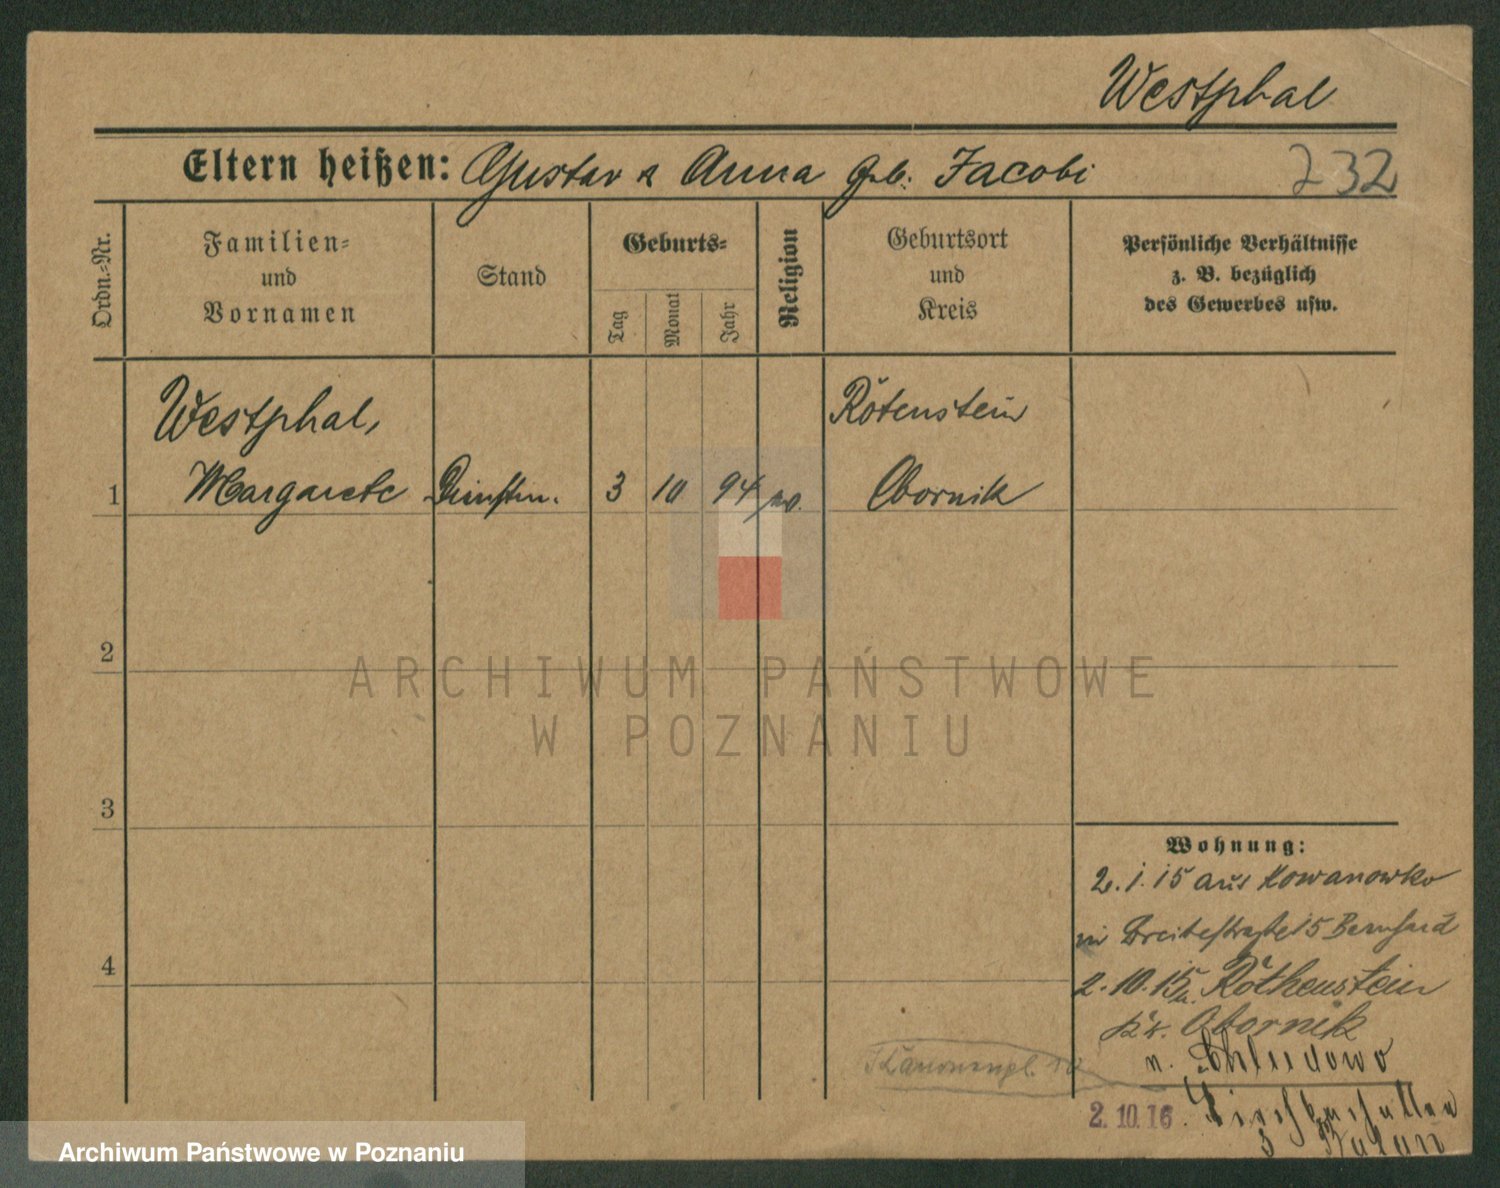 Westphal
Eltern heißen: Gustav & Anna geb. Jacobi
232
Ordn.=Nr.
Familien=
und
Vornamen
Stand
Geburts=
Tag
Monat
Jahr
Religion
Geburtsort
und
Kreis
Persönliche Verhältnisse
z. B. bezüglich
des Gewerbes usw.
Westphal,
Rötenstein
1 Margarete Dienstm. 3 10 94 ev. Obornik
2
ARCHIWUM PAŃSTWOWE
W POZNANIU
3
Wohnung:
2.1.15 aus Kowanowko
in Breitestraße 15 Bernhard
4
2.10.15 n. Röthenstein
Kr. Obornik
n. Chludowo
2.10.16.
Archiwum Państwowe w Poznaniu